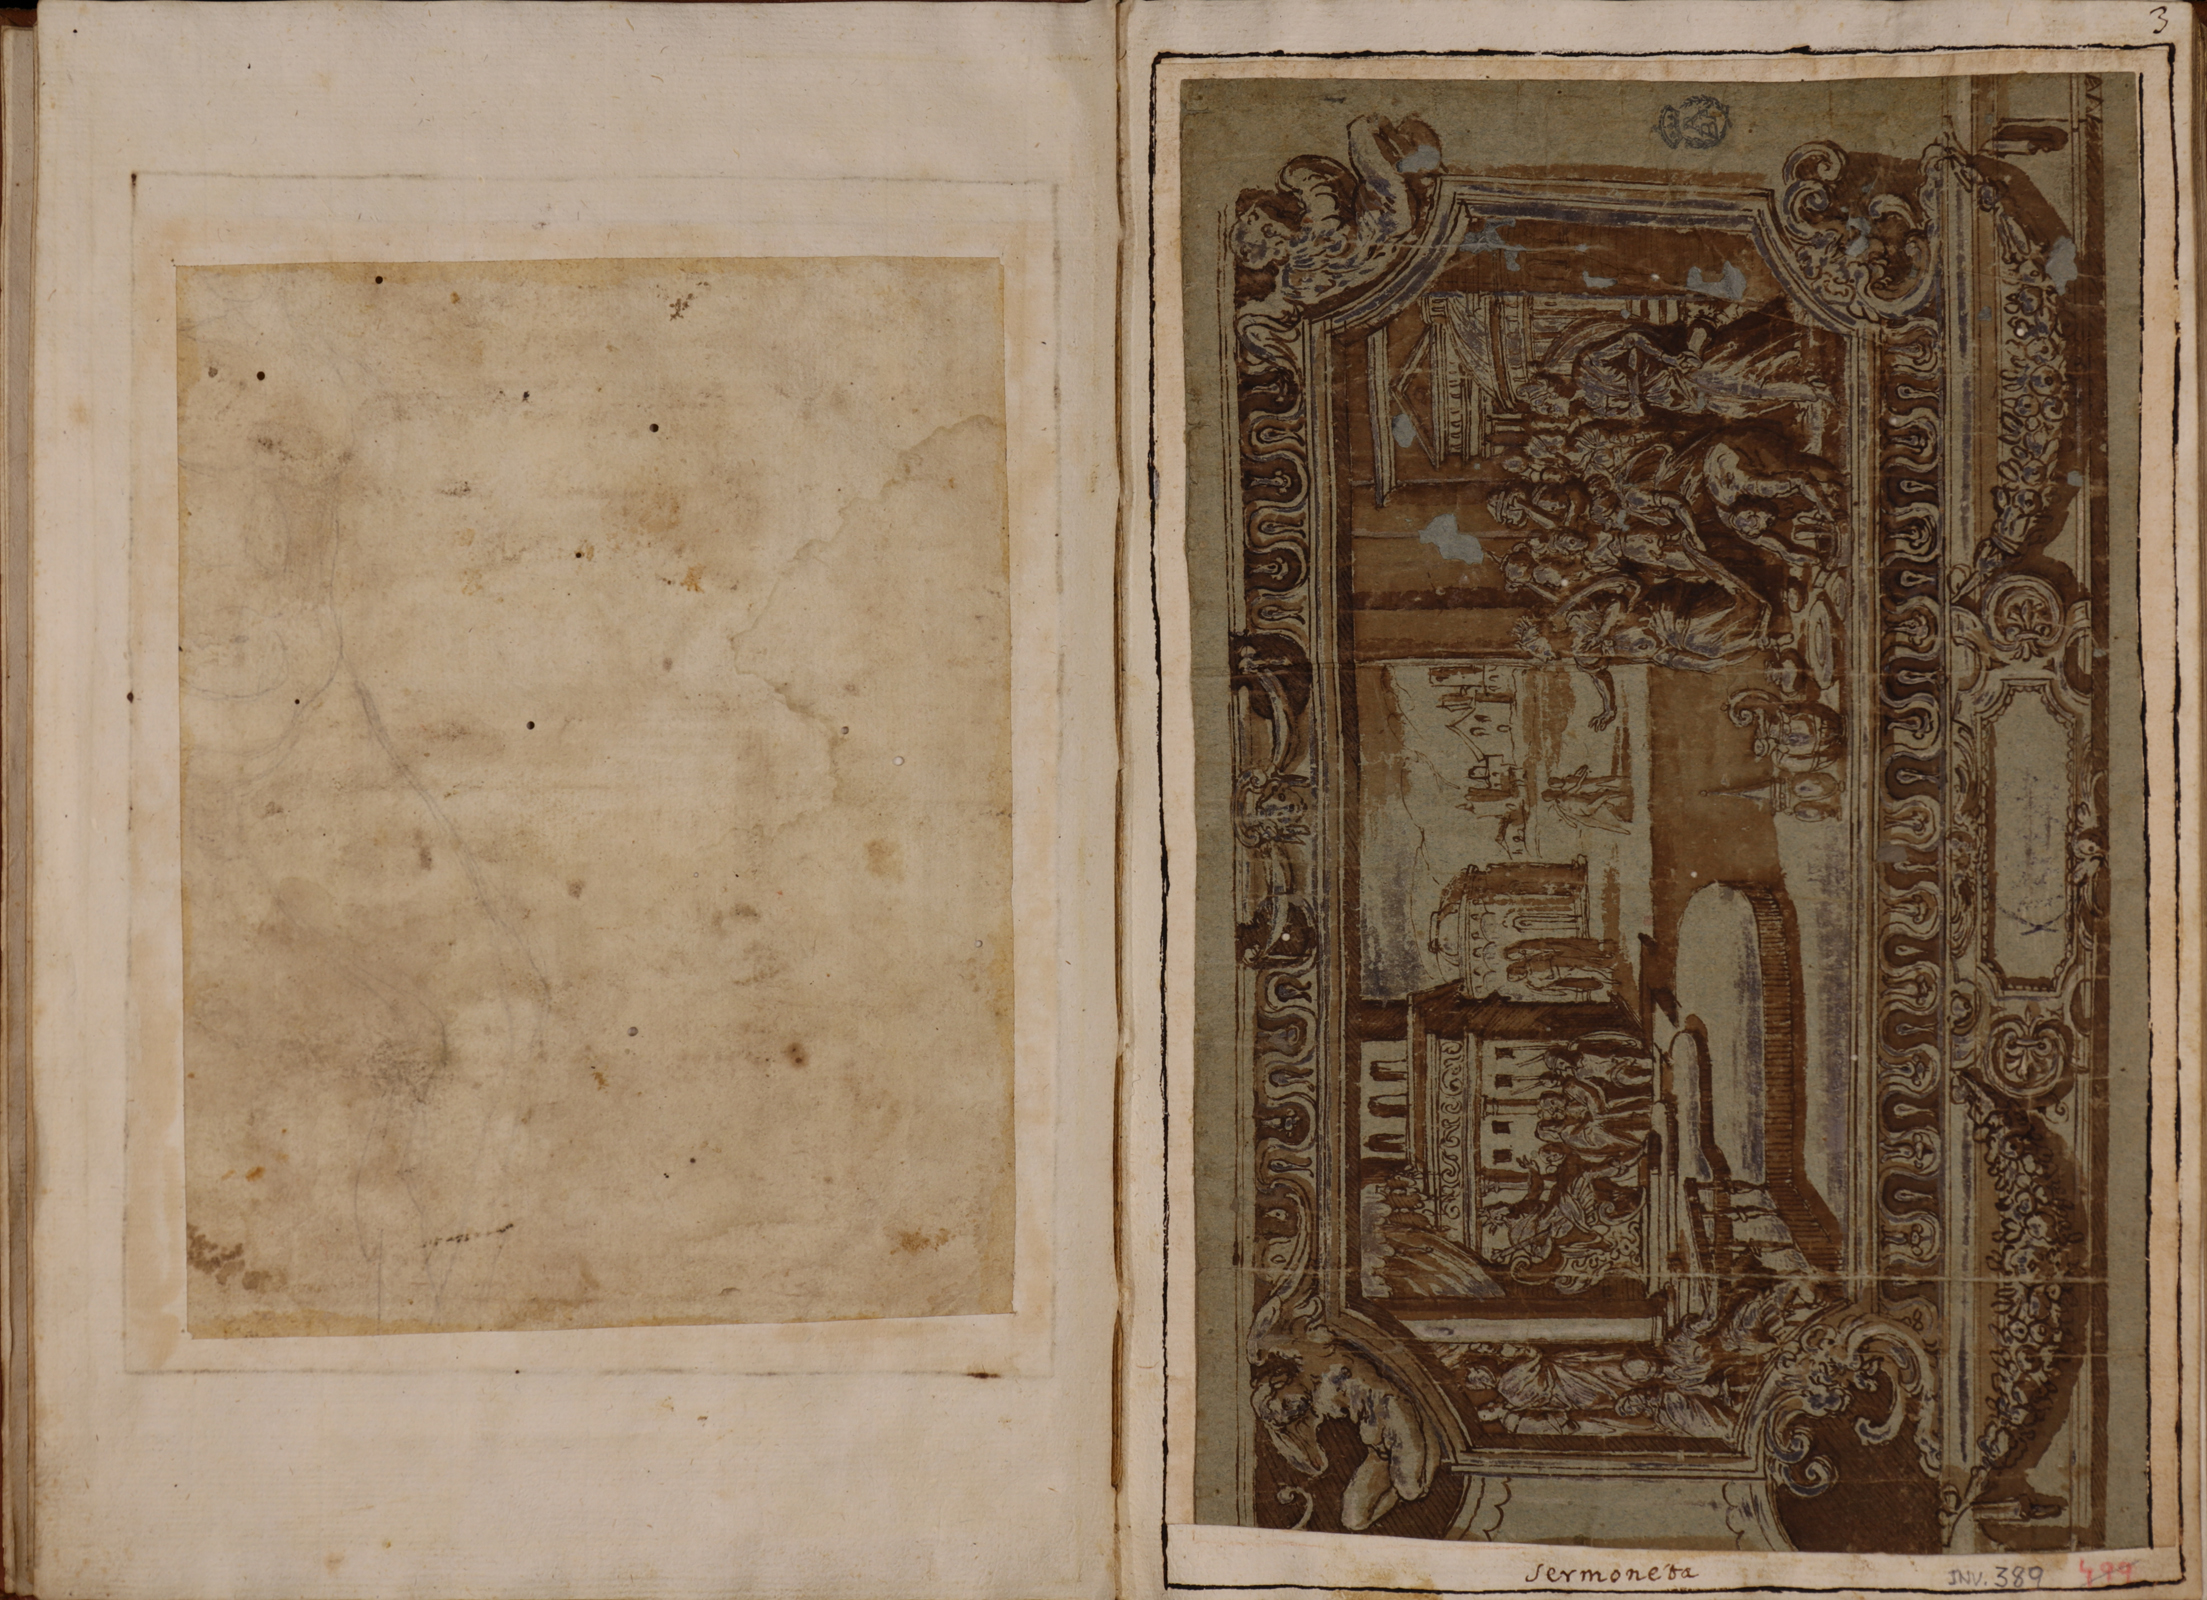 3
sermoneta
INV. 389 499